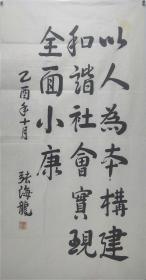 以人為本構建
和諧社會實現
全面小康
乙酉年十月
張海龍